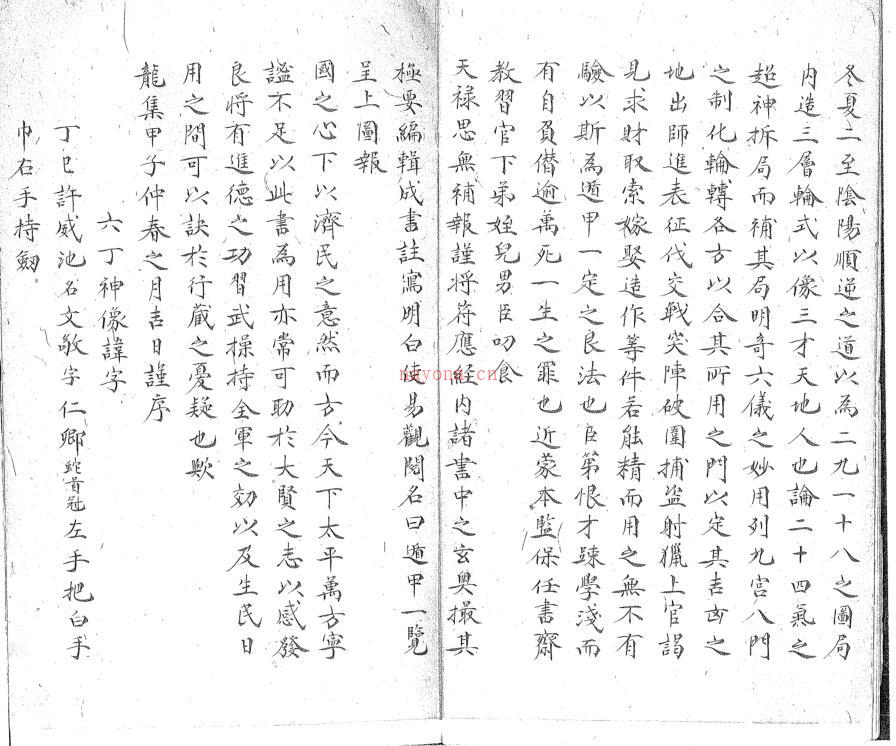 冬夏二至陰陽順逆之道以為二九一十八之圖局
内造三層輪式以像三才天地人也論二十四氣之
超神拆局而補其局明竒六儀之妙用列九宫八門
之制化輪轉各方以合其所用之門以定其吉凶之
地出師進表征伐交戰突陣破圍捕盗射獵上官謁
見求財取索嫁娶造作等件若能精而用之無不有
驗以斯為遁甲一定之良法也臣第恨才踈學淺而
有自負僭逾萬死一生之罪也近蒙本監保任書齋
教習官下弟姪兒男臣叨食
天禄思無補報謹将符應經内諸書中之玄奥撮其
極要編輯成書註寫明白使易觀閱名曰遁甲一覽
呈上圖報
國之心下以濟民之意然而方今天下太平萬方寧
謐不足以此書為用亦常可助於大賢之志以感發
良将有進德之功習武操持全軍之効以及生民日
用之間可以訣於行藏之憂疑也歟
龍集甲子仲春之月吉日謹序
六丁神像諱字
丁巳許咸池名文敬字仁卿蛇首冠左手把白手
巾右手持劔
nayona.cn